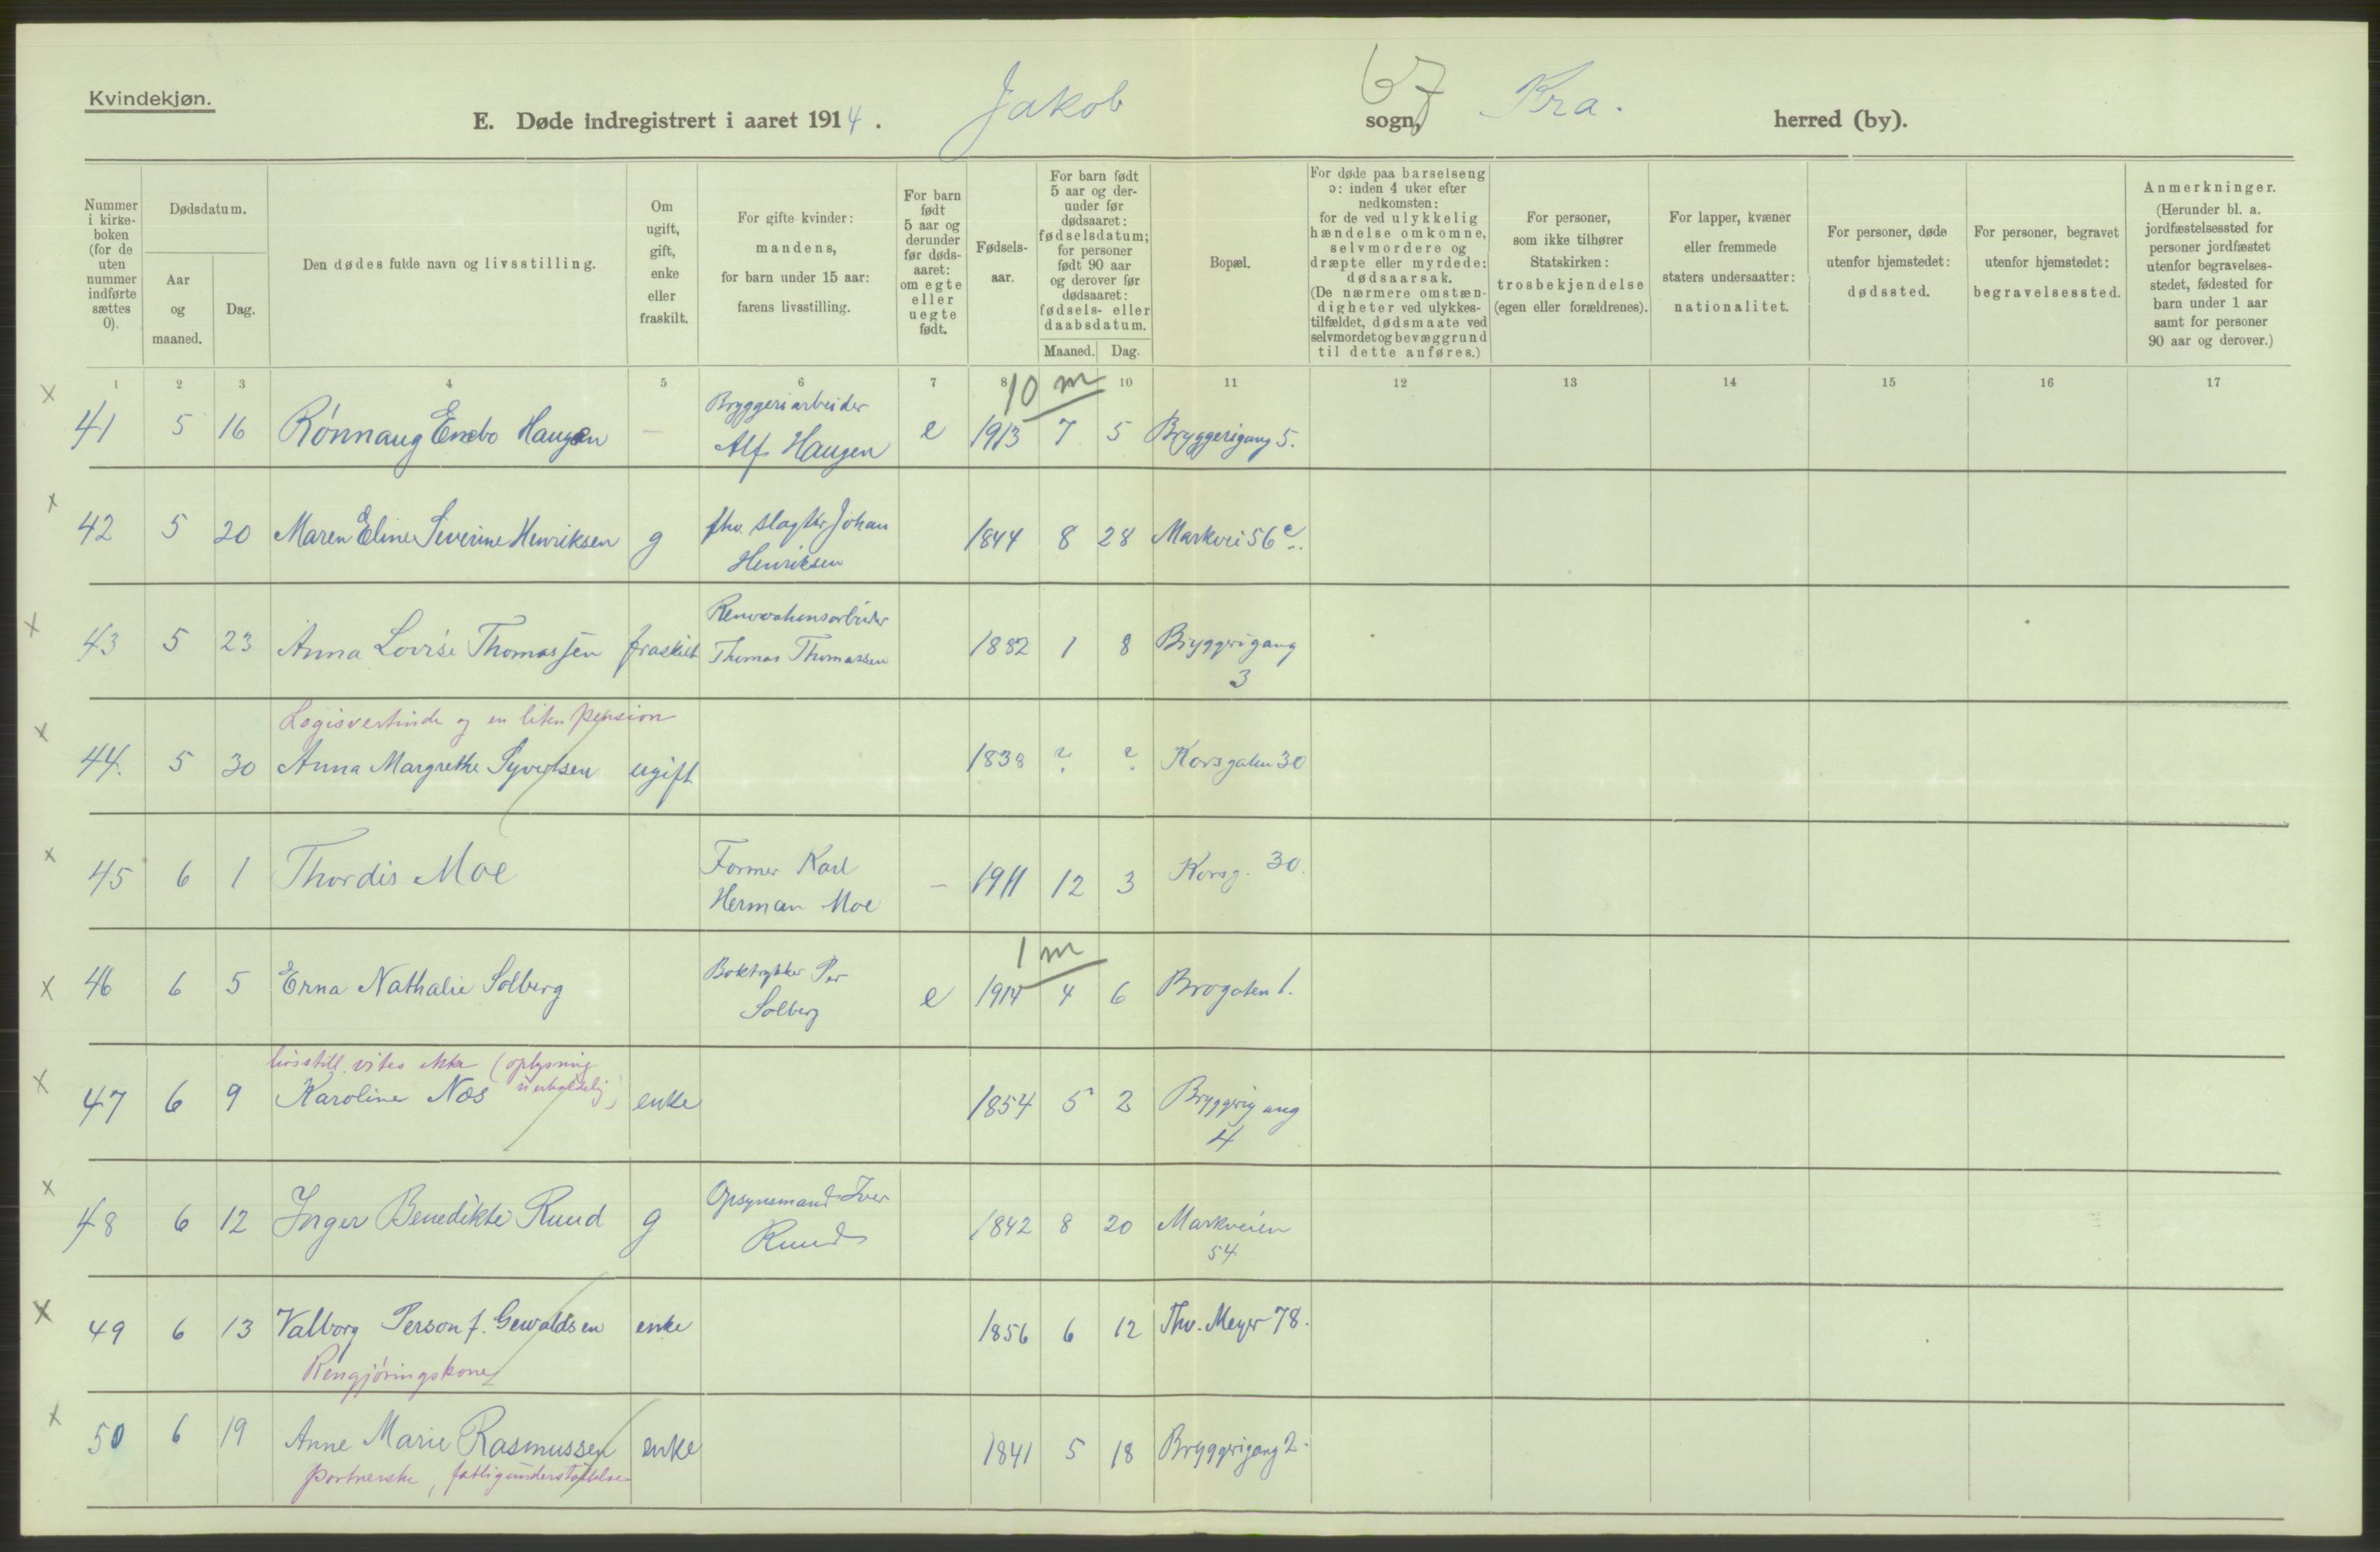 Kvindekjøn.
E. Døde indregistrert i aaret 1914. Jakob sogn, 67 Kra. herred (by).
Nummer i kirke- boken (for de uten nummer indførte sættes 0).
Dødsdatum.
Aar og maaned.
Dag.
Den dødes fulde navn og livsstilling.
Om ugift, gift, enke eller fraskilt.
For gifte kvinder: mandens, for barn under 15 aar: farens livsstilling.
For barn født 5 aar og derunder før døds- aaret: om egte eller uegte født.
Fødsels- aar.
For barn født 5 aar og der- under før dødsaaret: fødselsdatum; for personer født 90 aar og derover før dødsaaret: fødsels- eller daabsdatum.
Maaned. Dag.
Bopæl.
For døde paa barselseng ɔ: inden 4 uker efter nedkomsten: for de ved ulykkelig hændelse omkomne, selvmordere og dræpte eller myrdede: dødsaarsak. (De nærmere omstæn- digheter ved ulykkes- tilfældet, dødsmaate ved selvmordet og bevæggrund til dette anføres.)
For personer, som ikke tilhører Statskirken: trosbekjendelse (egen eller forældrenes).
For lapper, kvæner eller fremmede staters undersaatter: nationalitet.
For personer, døde utenfor hjemstedet: dødssted.
For personer, begravet utenfor hjemstedet: begravelsessted.
Anmerkninger. (Herunder bl. a. jordfæstelsessted for personer jordfæstet utenfor begravelses- stedet, fødested for barn under 1 aar samt for personer 90 aar og derover.)
1 2 3 4 5 6 7 8 10 11 12 13 14 15 16 17
10 m
x 41 5 16 Rønnaug Enebo Haugen — Bryggeriarbeider Alf Haugen e 1913 7 5 Bryggerigang 5.
x 42 5 20 Maren Eline Severine Henriksen g fhv. slagter Johan Henriksen 1844 8 28 Markvei 56 c.
x 43 5 23 Anna Lovise Thomassen fraskilt Renovationsarbeider Thomas Thomassen 1882 1 8 Bryggerigang 3
Logisvertinde og en liten pension
x 44. 5 30 Anna Margrethe Syvertsen ugift 1838 ? ? Korsgaten 30
x 45 6 1 Thordis Moe Former Karl Herman Moe — 1911 12 3 Korsg. 30.
1 m
x 46 6 5 Erna Nathalie Solberg Boktrykker Per Solberg e 1914 4 6 Brogaten 1.
livsstill. vites ikke (oplysning uerholdelig)
x 47 6 9 Karoline Næs enke 1854 5 2 Bryggerigang 4
x 48 6 12 Inger Benedikte Ruud g Opsynsmand Iver Ruud 1842 8 20 Markveien 54
x 49 6 13 Valborg Person f. Gewaldsen enke 1856 6 12 Thv. Meyer 78.
Rengjøringskone
x 50 6 19 Anne Marie Rasmussen enke 1841 5 18 Bryggerigang 2.
portnerske, fattigunderstøttelse